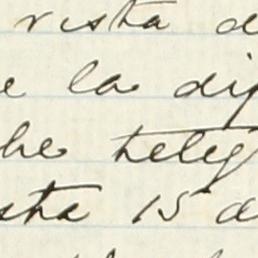 vista d
e la dip
he teleg
sta 15 d